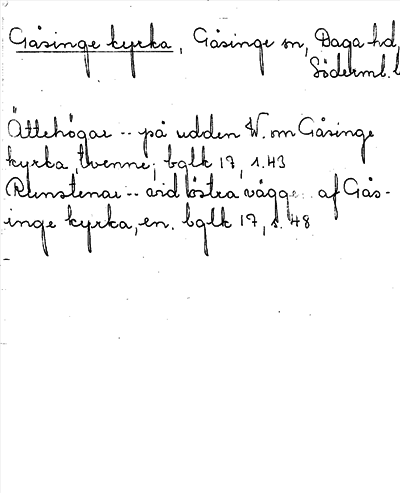 Gåsinge kyrka, Gåsinge sn, Daga hd,
Söderml. l
Ättehögar -- på udden V. om Gåsinge
kyrka, tvenne; bglk 17, s. 43
Runstenar -- vid östra vägge. af Gås-
inge kyrka, en. bglk 17, s. 48